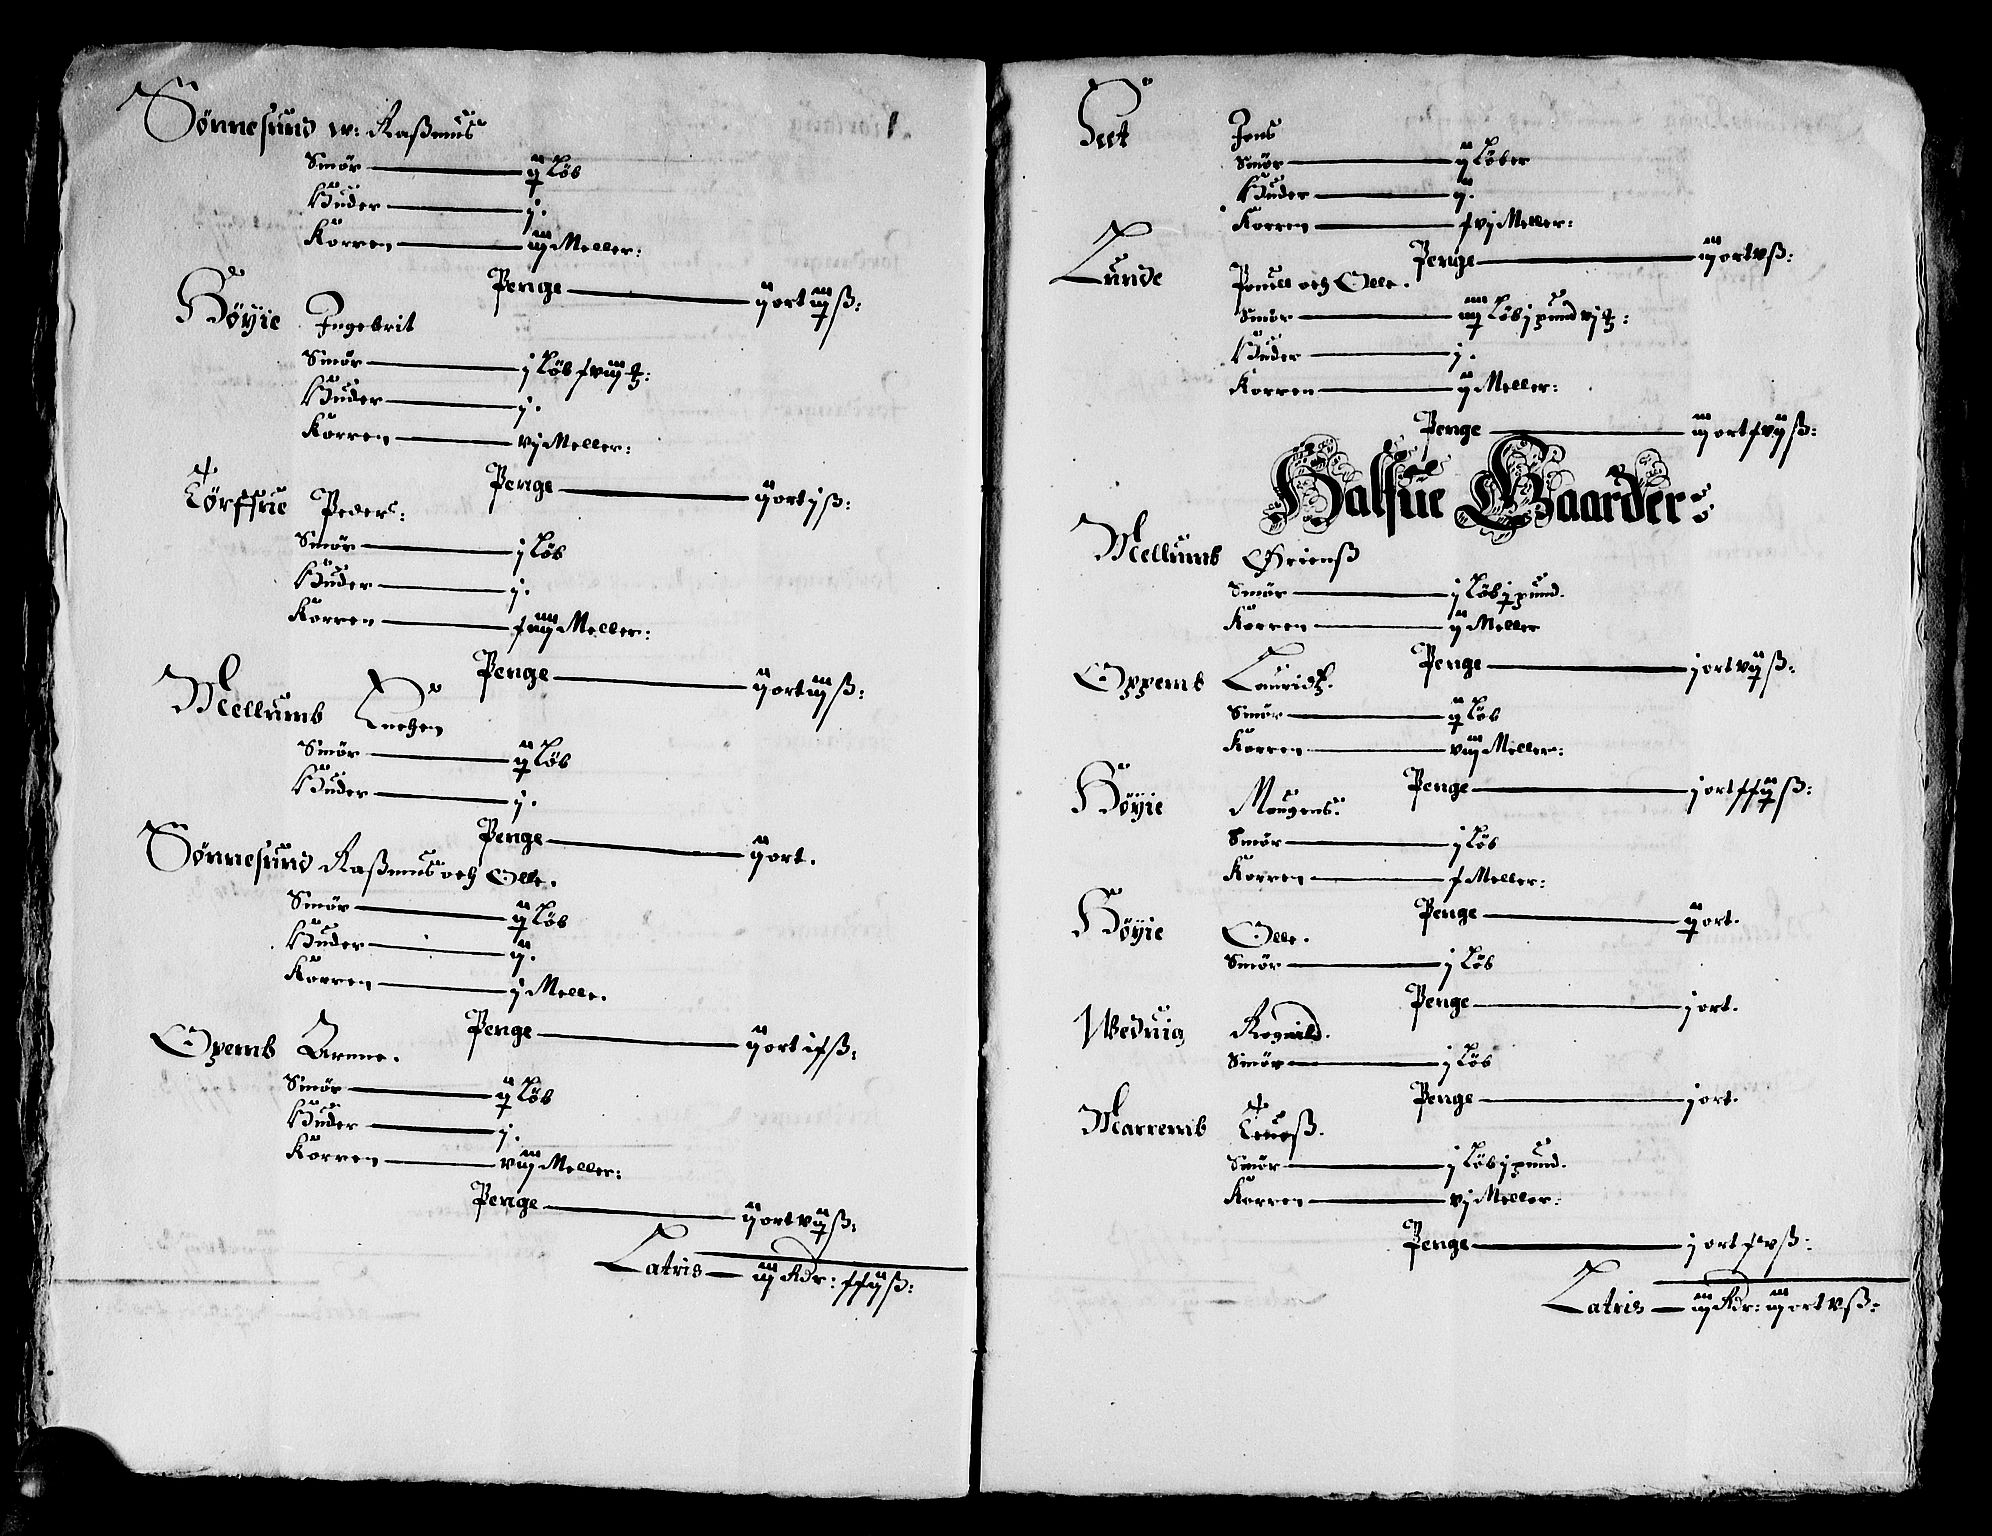 Sönnesund w: Raßmus
Smör — ij Löb
Huder — j.
Korren — iij Meller:
Penge — ij ort iij ß:
Höyie Ingebrit
Smör — j Löb xviij ℔:
Huder — j.
Korren — vj Meller:
Penge — ij ort j ß:
Törffrie Peder:
Smör — j Löb
Huder — j.
Korren — xiiij Meller:
Penge — ij ort iij ß:
Mellumb
Smör — ij Löb
Huder — j.
Penge — ij ort.
Sönnesund Raßmus och Olle.
Smör — ij Löb
Huder — ij.
Korren — j Melle.
Penge — ij ort ix ß:
Opemb Arnne.
Smör — ij Löb
Huder — j.
Korren — viij Meller:
Penge — ij ort vij ß:
Latris — iij Rdr: xxij ß:
Seet Jens
Smör — ij Löber
Huder — ij.
Korren — xvj Meller:
Penge — iij ort v ß:
Lunde Pouell och Olle.
Smör — iiij Löb j pund vj ℔:
Huder — j.
Korren — ij Meller:
Penge — iij ort xvij ß:
Halfue Gaarder:
Mellumb Grienß
Smör — j Löb j pund.
Korren — ij Meller
Penge — j ort vij ß:
Oppemb Lauridtz.
Smör — ij Löb
Korren — viij Meller:
Penge — j ort xxij ß:
Höyie Mougens.
Smör — j Löb
Korren — x Meller:
Penge — ij ort.
Höyie Olle.
Smör — j Löb
Penge — j ort.
Wedvig Rognild.
Smör — j Löb
Penge — j ort.
Marremb Teueß.
Smör — j Löb j pund.
Korren — vj Meller:
Penge — j ort xv ß:
Latris — iij Rdr: iij ort v ß: